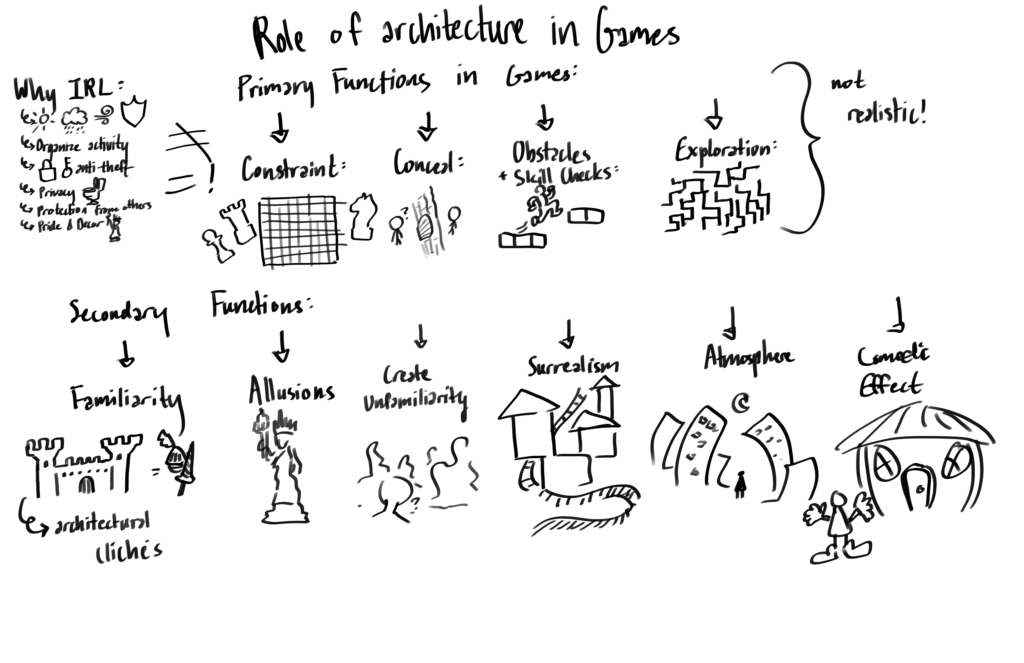 Role of architecture in Games
Why IRL:
Organize activity
anti-theft
Privacy
Protection from others
Pride & Decor
Primary Functions in Games:
Constraint:
Conceal:
Obstacles
+ Skill Checks:
Exploration:
not
realistic!
Secondary Functions:
Familiarity
architectural
clichés
Allusions
Create
Unfamiliarity
Surrealism
Atmosphere
Comedic
Effect